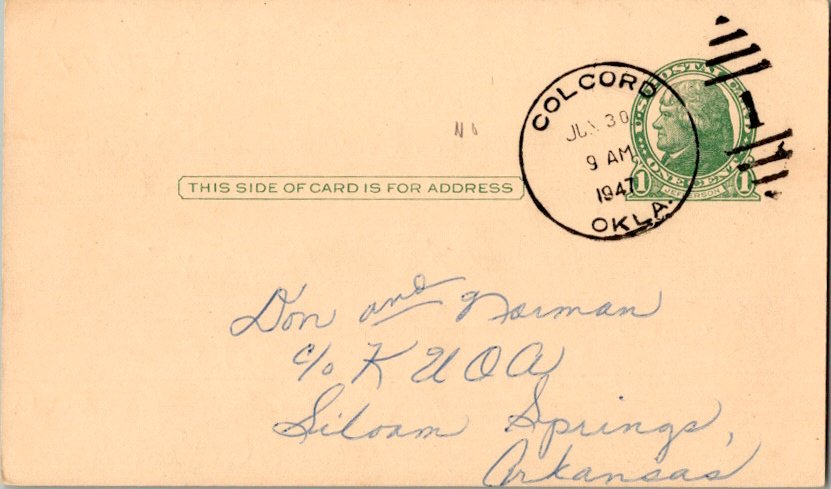 COLCORD
JUN 30
9 AM
1947
OKLA.
U.S. POSTAL CARD
1 ONE CENT 1
JEFFERSON
THIS SIDE OF CARD IS FOR ADDRESS
Don and Norman
c/o KUOA
Siloam Springs,
Arkansas